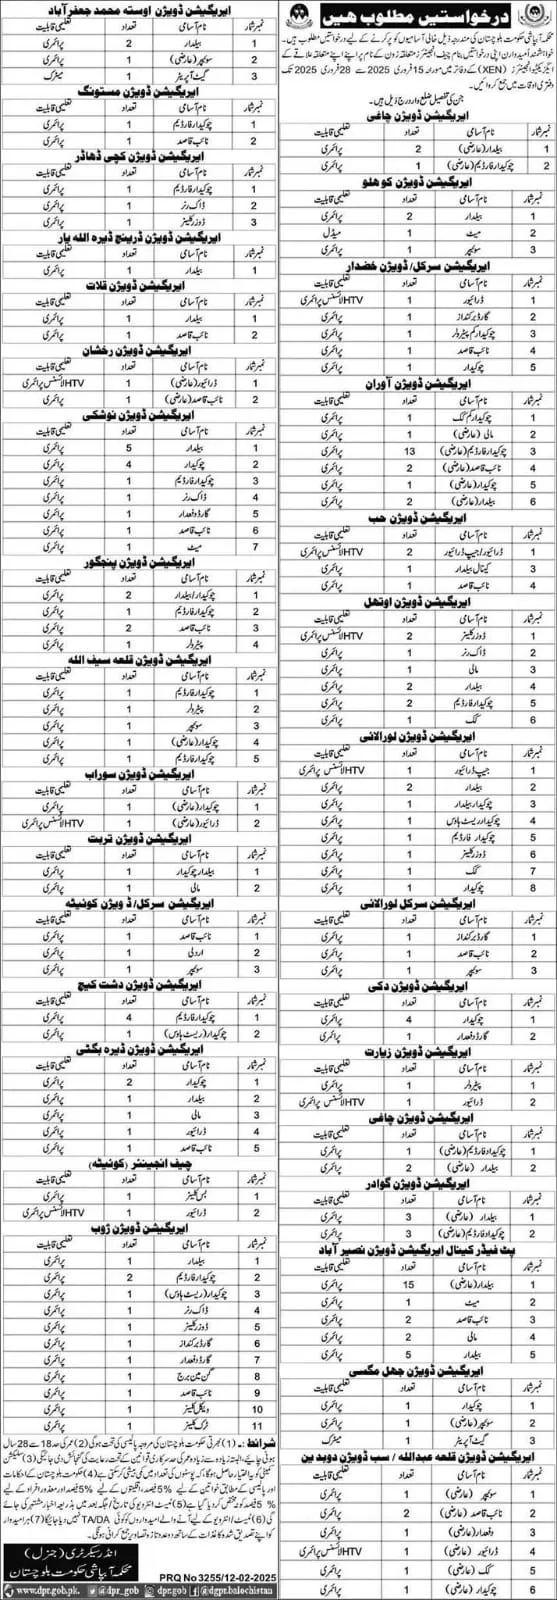 درخواستیں مطلوب ہیں
محکمہ آبپاشی حکومت بلوچستان کی مندرجہ ذیل خالی آسامیوں کو پر کرنے کے لیے درخواستیں مطلوب ہیں۔
خواہشمند امیدواران اپنی درخواستیں بنام چیف انجینئرز متعلقہ زون کے نام پر اپنے اپنے متعلقہ علاقے کے
ایگزیکٹیو انجینئرز (XEN) کے دفاتر میں مورخہ 15 فروری 2025 سے 28 فروری 2025 تک
دفتری اوقات میں جمع کروائیں۔
جن کی تفصیل ضلع وار درج ذیل ہیں۔
ایریگیشن ڈویژن چاغی
نمبر شمار نام آسامی تعداد تعلیمی قابلیت
1 بیلدار (عارضی) 2 پرائمری
2 چوکیدار فارڈیم (عارضی) 1 پرائمری
ایریگیشن ڈویژن کوہلو
نمبر شمار نام آسامی تعداد تعلیمی قابلیت
1 بیلدار 2 پرائمری
2 میٹ 1 میڈل
3 سوئیپر 1 پرائمری
ایریگیشن سرکل/ ڈویژن خضدار
نمبر شمار نام آسامی تعداد تعلیمی قابلیت
1 ڈرائیور 1 HTV لائسنس پرائمری
2 گارڈ برکنداز 1 پرائمری
3 چوکیدار کم پیٹرولر 1 پرائمری
4 نائب قاصد 1 پرائمری
5 چوکیدار 1 پرائمری
ایریگیشن ڈویژن آوران
نمبر شمار نام آسامی تعداد تعلیمی قابلیت
1 چوکیدار کم کک 1 پرائمری
2 مالی (عارضی) 1 پرائمری
3 چوکیدار فارڈیم (عارضی) 13 پرائمری
4 نائب قاصد (عارضی) 2 پرائمری
5 چوکیدار (عارضی) 1 پرائمری
6 بیلدار (عارضی) 2 پرائمری
ایریگیشن ڈویژن حب
نمبر شمار نام آسامی تعداد تعلیمی قابلیت
1 ڈرائیور/جیپ ڈرائیور 2 HTV لائسنس پرائمری
3 کینال بیلدار 1 پرائمری
4 نائب قاصد 1 پرائمری
ایریگیشن ڈویژن اوتھل
نمبر شمار نام آسامی تعداد تعلیمی قابلیت
1 ڈوزر کلینر 2 HTV لائسنس پرائمری
2 ڈاک رنر 1 پرائمری
3 مالی 1 پرائمری
4 بیلدار 2 پرائمری
5 چوکیدار فارڈیم 2 پرائمری
6 کک 1 پرائمری
ایریگیشن ڈویژن لورالائی
نمبر شمار نام آسامی تعداد تعلیمی قابلیت
1 جیپ ڈرائیور 1 HTV لائسنس پرائمری
2 بیلدار 2 پرائمری
3 چوکیدار بیلدار 1 پرائمری
4 چوکیدار ریسٹ ہاؤس 1 پرائمری
5 چوکیدار فارڈیم 1 پرائمری
6 ڈوزر کلینر 1 پرائمری
7 کک 1 پرائمری
8 چوکیدار 1 پرائمری
ایریگیشن سرکل لورالائی
نمبر شمار نام آسامی تعداد تعلیمی قابلیت
1 گارڈ برکنداز 1 پرائمری
2 نائب قاصد 1 پرائمری
3 سوئیپر 1 پرائمری
ایریگیشن ڈویژن دکی
نمبر شمار نام آسامی تعداد تعلیمی قابلیت
1 چوکیدار 4 پرائمری
2 گارڈ دفعدار 1 پرائمری
ایریگیشن ڈویژن زیارت
نمبر شمار نام آسامی تعداد تعلیمی قابلیت
1 پیٹرولر 1 پرائمری
2 ڈرائیور 1 HTV لائسنس پرائمری
ایریگیشن ڈویژن چاغی
نمبر شمار نام آسامی تعداد تعلیمی قابلیت
1 چوکیدار فارڈیم (عارضی) 1 پرائمری
2 بیلدار (عارضی) 2 پرائمری
ایریگیشن ڈویژن گوادر
نمبر شمار نام آسامی تعداد تعلیمی قابلیت
1 بیلدار (عارضی) 3 پرائمری
2 چوکیدار فارڈیم (عارضی) 3 پرائمری
پٹ فیڈر کینال ایریگیشن ڈویژن نصیر آباد
نمبر شمار نام آسامی تعداد تعلیمی قابلیت
1 بیلدار (عارضی) 15 پرائمری
2 میٹ 1 پرائمری
3 نائب قاصد 2 پرائمری
4 مالی 2 پرائمری
5 بیلدار 5 پرائمری
ایریگیشن ڈویژن جھل مگسی
نمبر شمار نام آسامی تعداد تعلیمی قابلیت
1 کک 1 پرائمری
2 سوئیپر (عارضی) 1 پرائمری
3 گیٹ آپریٹر 1 میٹرک
ایریگیشن ڈویژن قلعہ عبداللہ / سب ڈویژن دوبندین
نمبر شمار نام آسامی تعداد تعلیمی قابلیت
1 سوئیپر (عارضی) 1 پرائمری
2 چوکیدار (عارضی) 1 پرائمری
3 دفعدار (عارضی) 1 پرائمری
4 ڈرائیور (عارضی) 1 HTV لائسنس پرائمری
5 نائب قاصد (عارضی) 1 پرائمری
6 چوکیدار 1 پرائمری
ایریگیشن ڈویژن اوستہ محمد جعفرآباد
نمبر شمار نام آسامی تعداد تعلیمی قابلیت
1 بیلدار 2 پرائمری
2 سوئیپر (عارضی) 1 پرائمری
3 گیٹ آپریٹر 1 میٹرک
ایریگیشن ڈویژن مستونگ
نمبر شمار نام آسامی تعداد تعلیمی قابلیت
1 چوکیدار فارڈیم 1 پرائمری
2 نائب قاصد 1 پرائمری
ایریگیشن ڈویژن کچی ڈھاڈر
نمبر شمار نام آسامی تعداد تعلیمی قابلیت
1 چوکیدار فارڈیم 1 پرائمری
2 ڈاک رنر 1 پرائمری
3 ڈوزر کلینر 1 پرائمری
ایریگیشن ڈویژن ڈرینج ڈیرہ اللہ یار
نمبر شمار نام آسامی تعداد تعلیمی قابلیت
1 بیلدار 1 پرائمری
ایریگیشن ڈویژن قلات
نمبر شمار نام آسامی تعداد تعلیمی قابلیت
1 بیلدار 1 پرائمری
2 نائب قاصد 1 پرائمری
ایریگیشن ڈویژن رخشان
نمبر شمار نام آسامی تعداد تعلیمی قابلیت
1 ڈرائیور (عارضی) 1 HTV لائسنس پرائمری
2 نائب قاصد (عارضی) 1 پرائمری
ایریگیشن ڈویژن نوشکی
نمبر شمار نام آسامی تعداد تعلیمی قابلیت
1 بیلدار 5 پرائمری
2 چوکیدار 4 پرائمری
3 چوکیدار فارڈیم 1 پرائمری
4 ڈاک رنر 1 پرائمری
5 گارڈ دفعدار 1 پرائمری
6 نائب قاصد 1 پرائمری
7 میٹ 1 پرائمری
ایریگیشن ڈویژن پنجگور
نمبر شمار نام آسامی تعداد تعلیمی قابلیت
1 چوکیدار/بیلدار 2 پرائمری
2 چوکیدار فارڈیم 1 پرائمری
3 نائب قاصد 2 پرائمری
4 پیٹرولر 1 پرائمری
ایریگیشن ڈویژن قلعہ سیف اللہ
نمبر شمار نام آسامی تعداد تعلیمی قابلیت
1 چوکیدار فارڈیم 1 پرائمری
2 پیٹرولر 1 پرائمری
3 سوئیپر 1 پرائمری
4 چوکیدار (عارضی) 1 پرائمری
5 چوکیدار فارڈیم 1 پرائمری
ایریگیشن ڈویژن سوراب
نمبر شمار نام آسامی تعداد تعلیمی قابلیت
1 چوکیدار (عارضی) 1 پرائمری
2 ڈرائیور (عارضی) 1 HTV لائسنس پرائمری
ایریگیشن ڈویژن تربت
نمبر شمار نام آسامی تعداد تعلیمی قابلیت
1 بیلدار چوکیدار 1 پرائمری
2 مالی 1 پرائمری
ایریگیشن سرکل/ ڈویژن کوئیٹہ
نمبر شمار نام آسامی تعداد تعلیمی قابلیت
1 نائب قاصد 1 پرائمری
2 اردلی 1 پرائمری
3 سوئیپر 1 پرائمری
ایریگیشن ڈویژن دشت کیچ
نمبر شمار نام آسامی تعداد تعلیمی قابلیت
1 چوکیدار فارڈیم 4 پرائمری
2 چوکیدار (ریسٹ ہاؤس) 1 پرائمری
ایریگیشن ڈویژن ڈیرہ بگٹی
نمبر شمار نام آسامی تعداد تعلیمی قابلیت
1 چوکیدار 2 پرائمری
2 بیلدار 1 پرائمری
3 مالی 1 پرائمری
4 ڈرائیور 1 پرائمری
5 نائب قاصد 1 پرائمری
چیف انجینئر (کوئیٹہ)
نمبر شمار نام آسامی تعداد تعلیمی قابلیت
1 بس کلینر 1 پرائمری
2 ڈرائیور 1 HTV لائسنس پرائمری
ایریگیشن ڈویژن ژوب
نمبر شمار نام آسامی تعداد تعلیمی قابلیت
1 بیلدار 1 پرائمری
2 چوکیدار فارڈیم 2 پرائمری
3 چوکیدار (ریسٹ ہاؤس) 1 پرائمری
4 ڈاک رنر 1 پرائمری
5 ڈوزر کلینر 1 پرائمری
6 گارڈ برکنداز 1 پرائمری
7 گارڈ دفعدار 1 پرائمری
8 گن مین برج 1 پرائمری
9 نائب قاصد 1 پرائمری
10 وہیکل کلینر 1 پرائمری
11 ٹرک کلینر 1 پرائمری
شرائط:۔ (1) بھرتی حکومت بلوچستان کی مروجہ پالیسی کی تحت ہوگی (2) عمر کی حد 18 سے 28 سال
ہونی چاہیے، البتہ زیادہ سے زیادہ عمر کی حد سرکاری قوانین کے تحت رعایت کی گنجائش دی جائیگی (3) سلیکشن
کمیٹی کو یہ اختیار حاصل ہوگا، کہ پوسٹوں کی تعداد میں کمی بیشی کر سکتے ہے (4) حکومت بلوچستان کی احکامات
اور پالیسی کے مطابق خواتین کے لیے 5% فیصد، اقلیتوں کے لیے 5% فیصد اور معذور افراد کے لیے
5% فیصد کوٹہ مختص کر دیا گیا ہے (5) ٹیسٹ انٹرویو کی تاریخ / جگہ بعد میں بذریعہ اخبار مشتہر کی جائے
گی (6) ٹیسٹ و انٹرویو کے لیے آنے والے امیدواروں کو کوئی TA/DA نہیں دیا جائیگا (7) ہر امیدوار
کو اپنے تصدیق شدہ کاغذات کے ساتھ دو عدد تازہ تصاویر جمع کرانی ہونگی۔
انڈر سیکرٹری (جنرل)
محکمہ آبپاشی حکومت بلوچستان
PRQ No 3255/12-02-2025
www.dpr.gob.pk. @dpr_gob dpr.gob @dgpr.balochistan